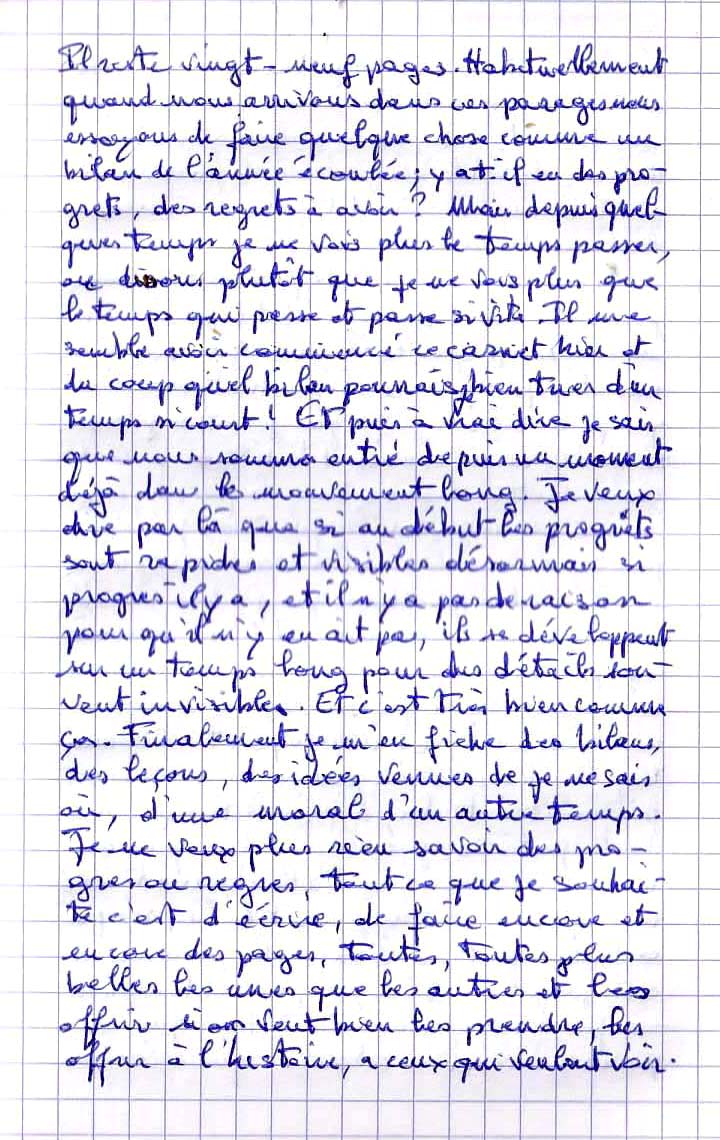 Il reste vingt-neuf pages. Habituellement
quand nous arrivons dans ces parages nous
essayons de faire quelque chose comme un
bilan de l'année écoulée; y at-il eu des pro-
grets, des regrets à avoir ? Mais depuis quel-
ques temps je ne vois plus le temps passer,
ou disons plutôt que je ne vois plus que
le temps qui passe et passe si vite. Il me
semble avoir commencé ce carnet hier et
du coup quel bilan pourrais je bien tirer d'un
temps si court! Et puis à vrai dire je sais
que nous somms entré depuis un moment
déjà dans le mouvement long. Je veux
dire par là que si au début les progrets
sont rapides et visibles désormais si
progres il y a, et il n'y a pas de raison
pour qu'il n'y en ait pas, ils se développent
sur un temps long pour des détails sou-
vent invisibles. Et c'est très bien comme
ça. Finalement je m'en fiche des bilans,
des leçons, des idées venues de je ne sais
où, d'une morale d'un autre temps.
Je ne veux plus rien savoir des pro-
gres ou regres, tout ce que je souhai-
te c'est d'écrire, de faire encore et
encore des pages, toutes, toutes plus
belles les unes que les autres et les
offrir si on veut bien les prendre, les
offrir à l'histoire, a ceux qui veulent voir.